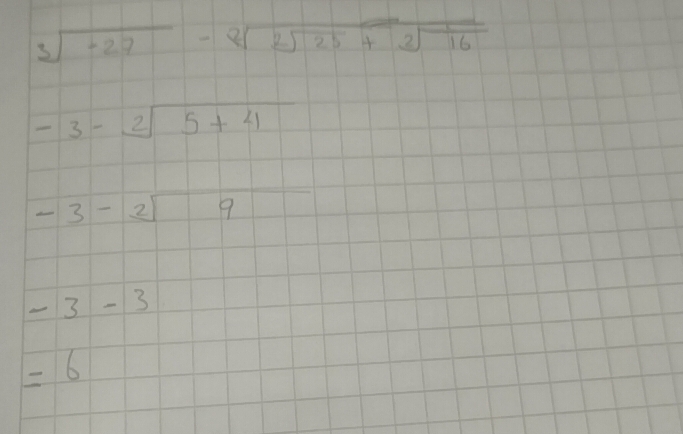 3√-27 - 2√2√25 + 2√16
-3 - 2√5+4
-3 - 2√9
-3 - 3
= 6